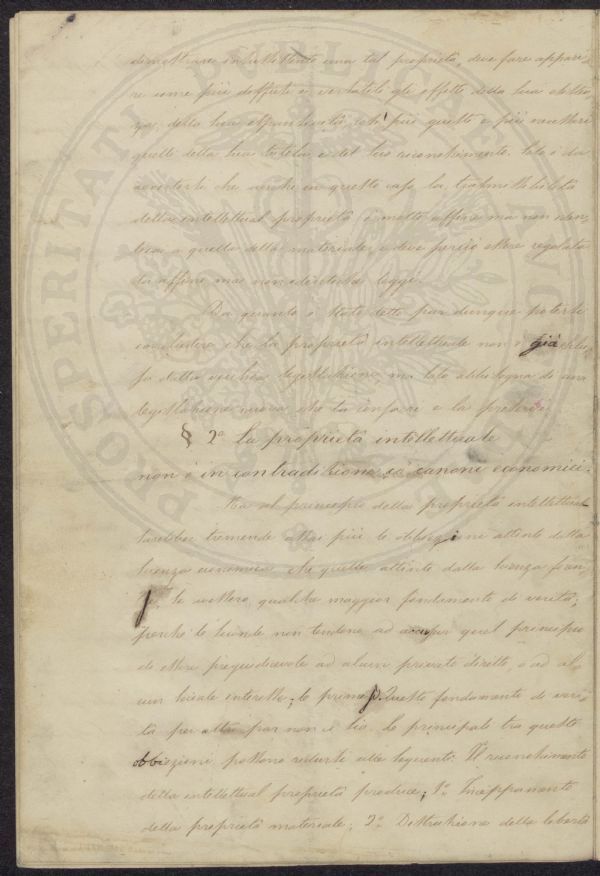 dimostrare intellettiva una tal proprietà, deve fare appari-
re come più diffusi e versatili gli effetti della sua
della sua così più questo e più
quelli della sua tutela, e del suo riconoscimento. Solo è da
avvertirsi che anche in questo caso la trasmissibilità
della intellettual proprietà è molto affine ma non iden-
tica a quella della materiale, e deve perciò essere regolata
da affini ma non identiche leggi.
Da quanto è stato detto pare dunque potersi
concludere che la proprietà intellettuale non è già
dalla vecchia legislazione, ma solo abbisogna di una
legislazione nuova che la e la protegga.
§ 2º La proprietà intellettuale
non è in contradizione co' canoni economici.
Ma al principio della proprietà intellettuale
sarebbero tremende assai più le obbiezioni attinte dalla
scienza economica che quelle attinte dalla scienza
se avessero qualche maggior fondamento di verità,
perché le seconde non tendono ad accusar quel principio
di essere pregiudicevole ad alcun privato diritto, o ad al-
cun sociale interesse; le prime sì. Questo fondamento di veri-
tà per altro par non vi sia. Le principali tra queste
obbiezioni possono ridursi alle seguenti. Il riconoscimento
della intellettual proprietà produce; 1º Inceppamento
della proprietà materiale; 2º Distruzione della libertà
PROSPERITATI PVBLICAE